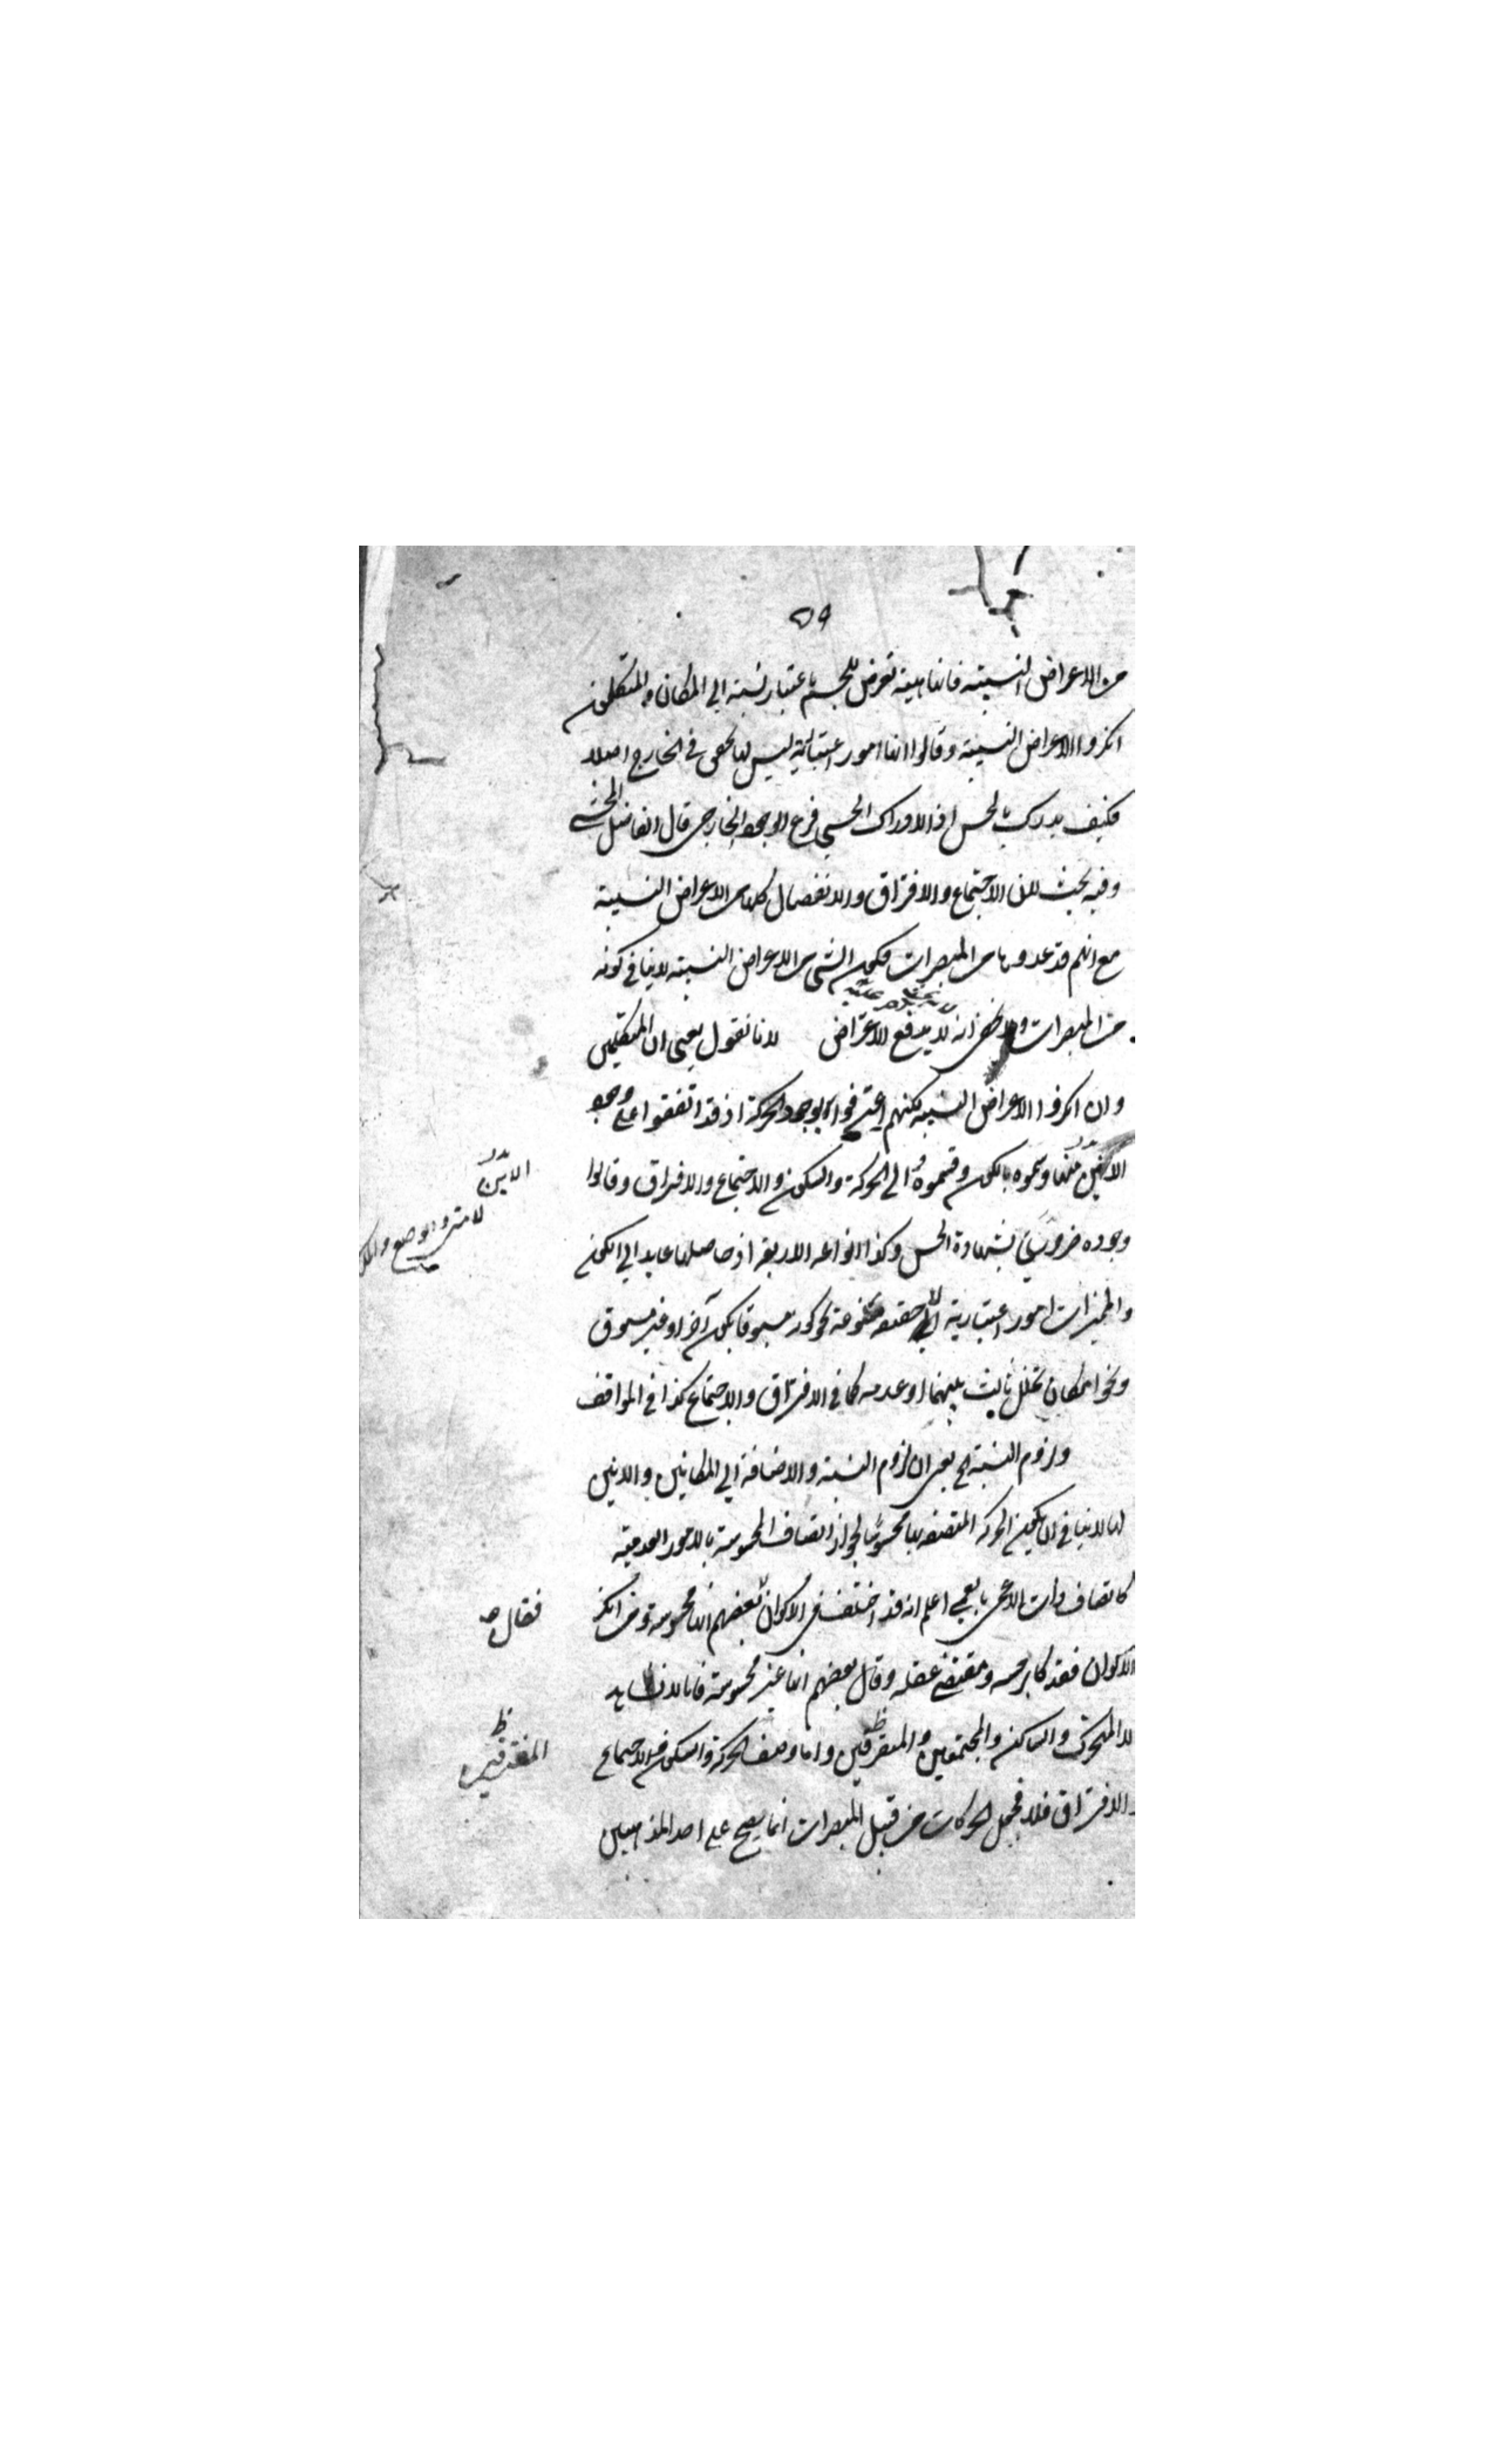 ٥٩
من الاعراض النسبية فانها هيئة تعرض للجسم باعتبار نسبته الي المكان والمتكلمون
انكروا الاعراض النسبية وقالوا انها امور اعتبارية ليس لها تحقق في الخارج اصلا
فكيف يدرك بالحس اذ الادراك الحسي فرع الوجود الخارجي قال الفاضل المحشي
وفيه بحث لان الاجتماع والافتراق والانفصال كلها من الاعراض النسبية
مع انهم قد عدوها من المبصرات فكون الشي من الاعراض النسبية لا ينافي كونه
من المبصرات ولا يخفى انه لا يدفع الاعتراض لانا نقول يعني ان المتكلمين
وان انكروا الاعراض النسبية لكنهم اعترفوا بوجود الحركة اذ قد اتفقوا على وجود
الاين منها وسموه بالكون وقسموه الى الحركة والسكون والاجتماع والافتراق وقالوا
الاين
لا متى والوضع والملك
وجوده ضروري بشهادة الحس وكذا انواعه الاربعة اذ حاصلها عايد الي الكون
والمميزات امور اعتبارية لا حقيقة متنوعة نحو كونه مسبوقا بكون آخر او غير مسبوق
ونحو امكان تخلل ثالث بينهما او عدمه كما في الافتراق والاجتماع كذا في المواقف
ولزوم النسبة الخ يعني ان لزوم النسبة والاضافة الي المكانين والانين
لها لا ينافي ان يكون الحركة المتصفة بها محسوسا لجواز اتصاف المحسوسة بالامور العدمية
كاتصاف ذات الاعمى بالعمي اعلم انه قد اختلف في الاكوان بعضهم انها محسوسة ومن انكر
فقال صح
الاكوان فقد كابر حسه ومقتضى عقله وقال بعضهم انها غير محسوسة فانا لا نشاهد
الا المتحرك والساكن والمجتمعين والمتفرقين واما وصف الحركة والسكون والاجتماع
المفترقين
ظ
والافتراق فلا فجعل الحركات من قبيل المبصرات انما يصح على احد المذهبين